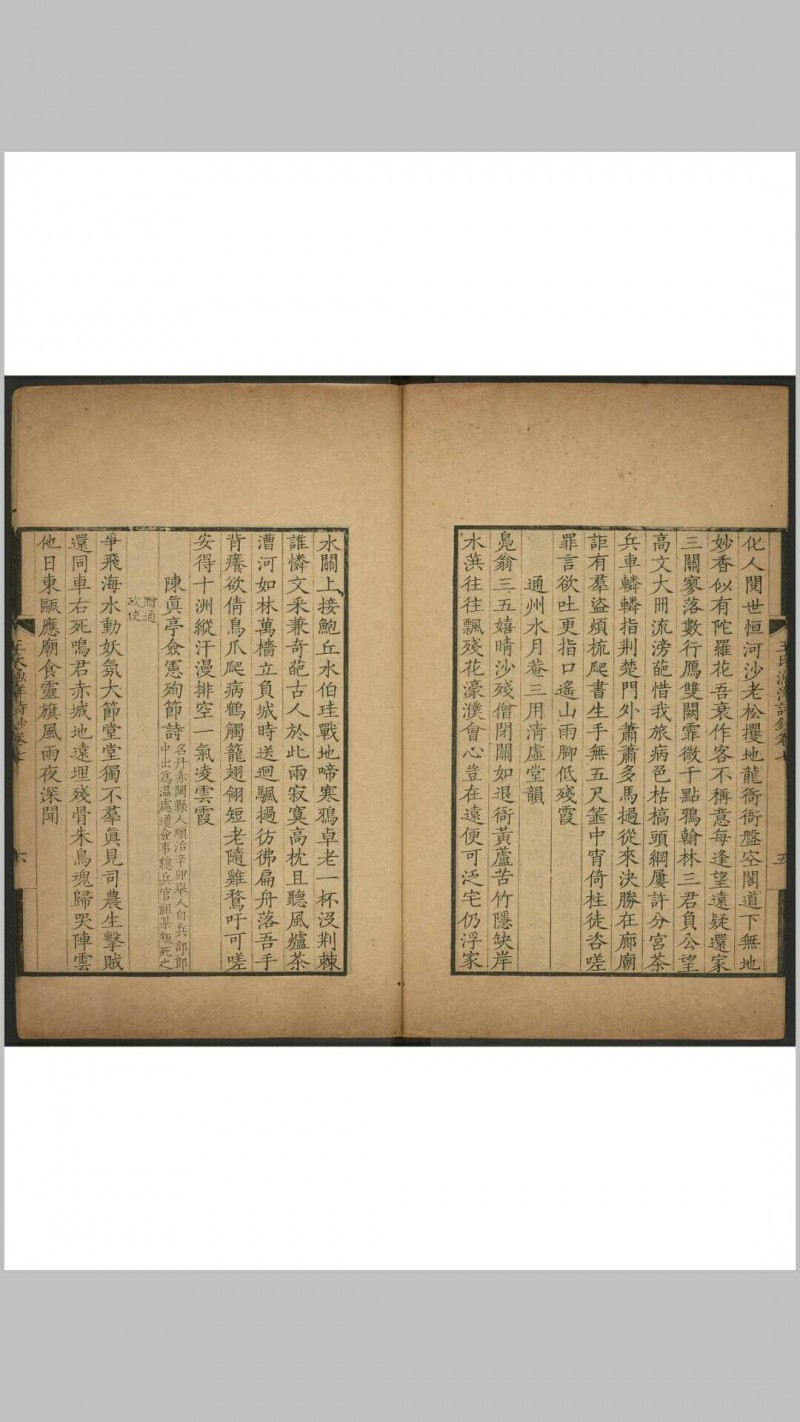 化人閱世恒河沙老松攫地龍衙衙盤空閣道下無地
妙香似有陀羅花吾衰作客不稱意每逢望遠疑還家
三關寥落數行鴈雙闕霏微千點鴉翰林三君負公望
高文大冊流滂葩惜我旅病邑枯槁頭綱屢許分宮茶
兵車轔轔指荆楚門外蕭蕭多馬撾從來決勝在廊廟
詎有羣盜煩梳爬書生手無五尺箠中宵倚柱徒咨嗟
罪言欲吐更指口遙山雨腳低殘霞
通州水月菴三用清虛堂韻
鳧翁三五嬉晴沙殘僧閉關如退衙黃蘆苦竹隱缺岸
水葓往往飄殘花濠濮會心豈在遠便可泛宅仍浮家
水關上接鮑丘水伯珪戰地啼寒鴉卓老一杯沒荆棘
誰憐文采兼奇葩古人於此兩寂寞高枕且聽風爐茶
漕河如林萬檣立負城時送迴颿撾彷彿扁舟落吾手
背癢欲倩鳥爪爬病鶴觸籠翅翎短老隨雞鶩吁可嗟
安得十洲縱汗漫排空一氣凌雲霞
陳眞亭僉憲殉節詩
名丹赤閩縣人順治辛卯舉人自兵部郎
中出爲溫處道僉事總兵官祖某叛死之
贈通
政使
爭飛海水動妖氛大節堂堂獨不羣眞見司農生擊賊
還同車右死鳴君赤城地遠埋殘骨朱鳥魂歸哭陣雲
他日東甌應廟食靈旗風雨夜深聞